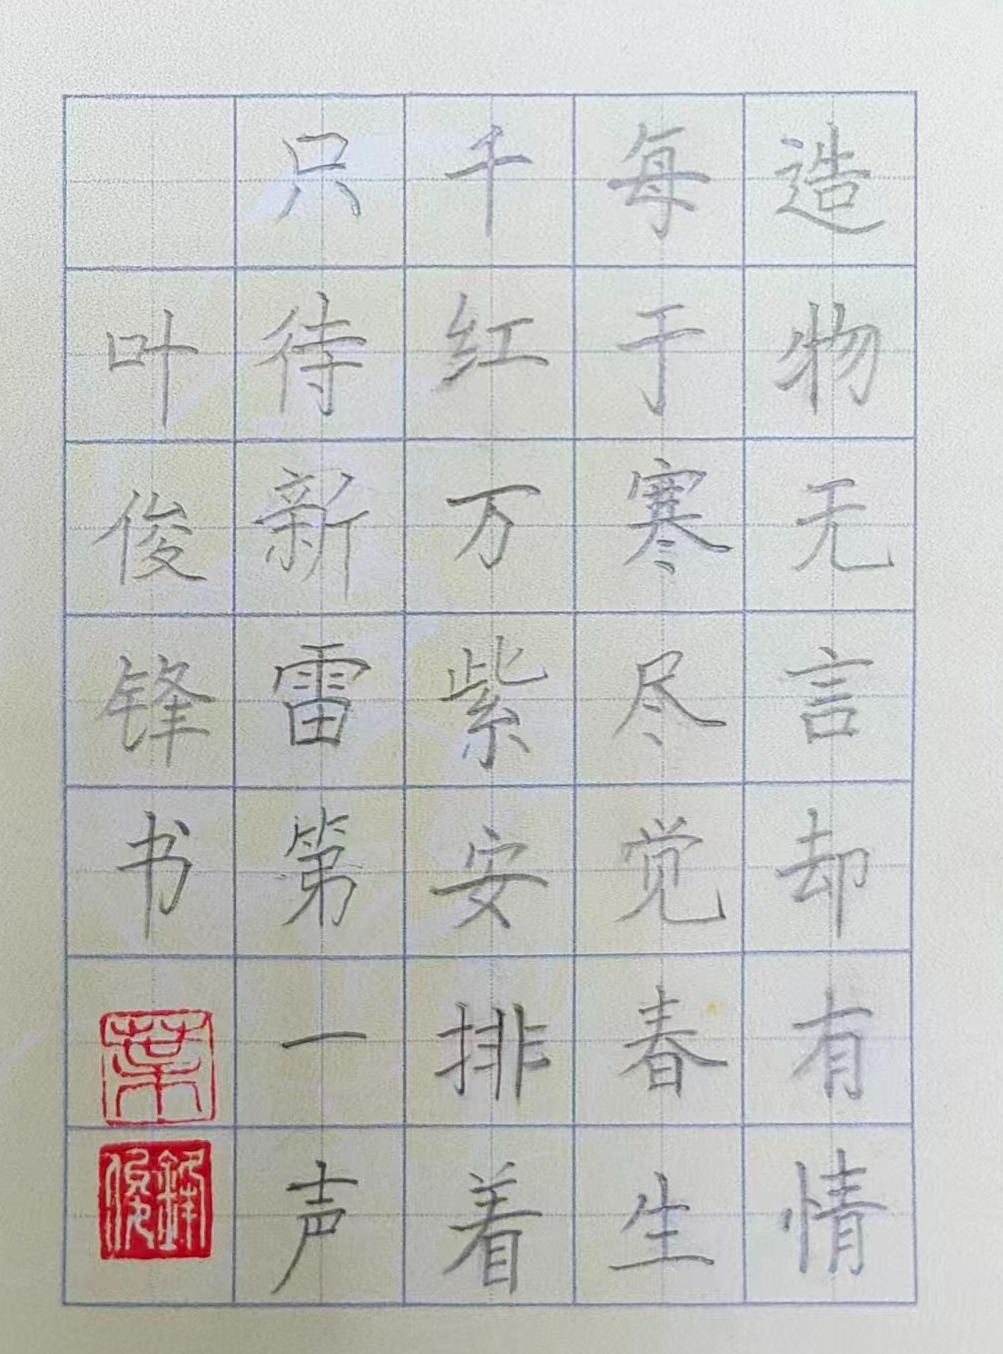 造物无言却有情
每于寒尽觉春生
千红万紫安排着
只待新雷第一声
叶俊锋书
葉
俊鋒